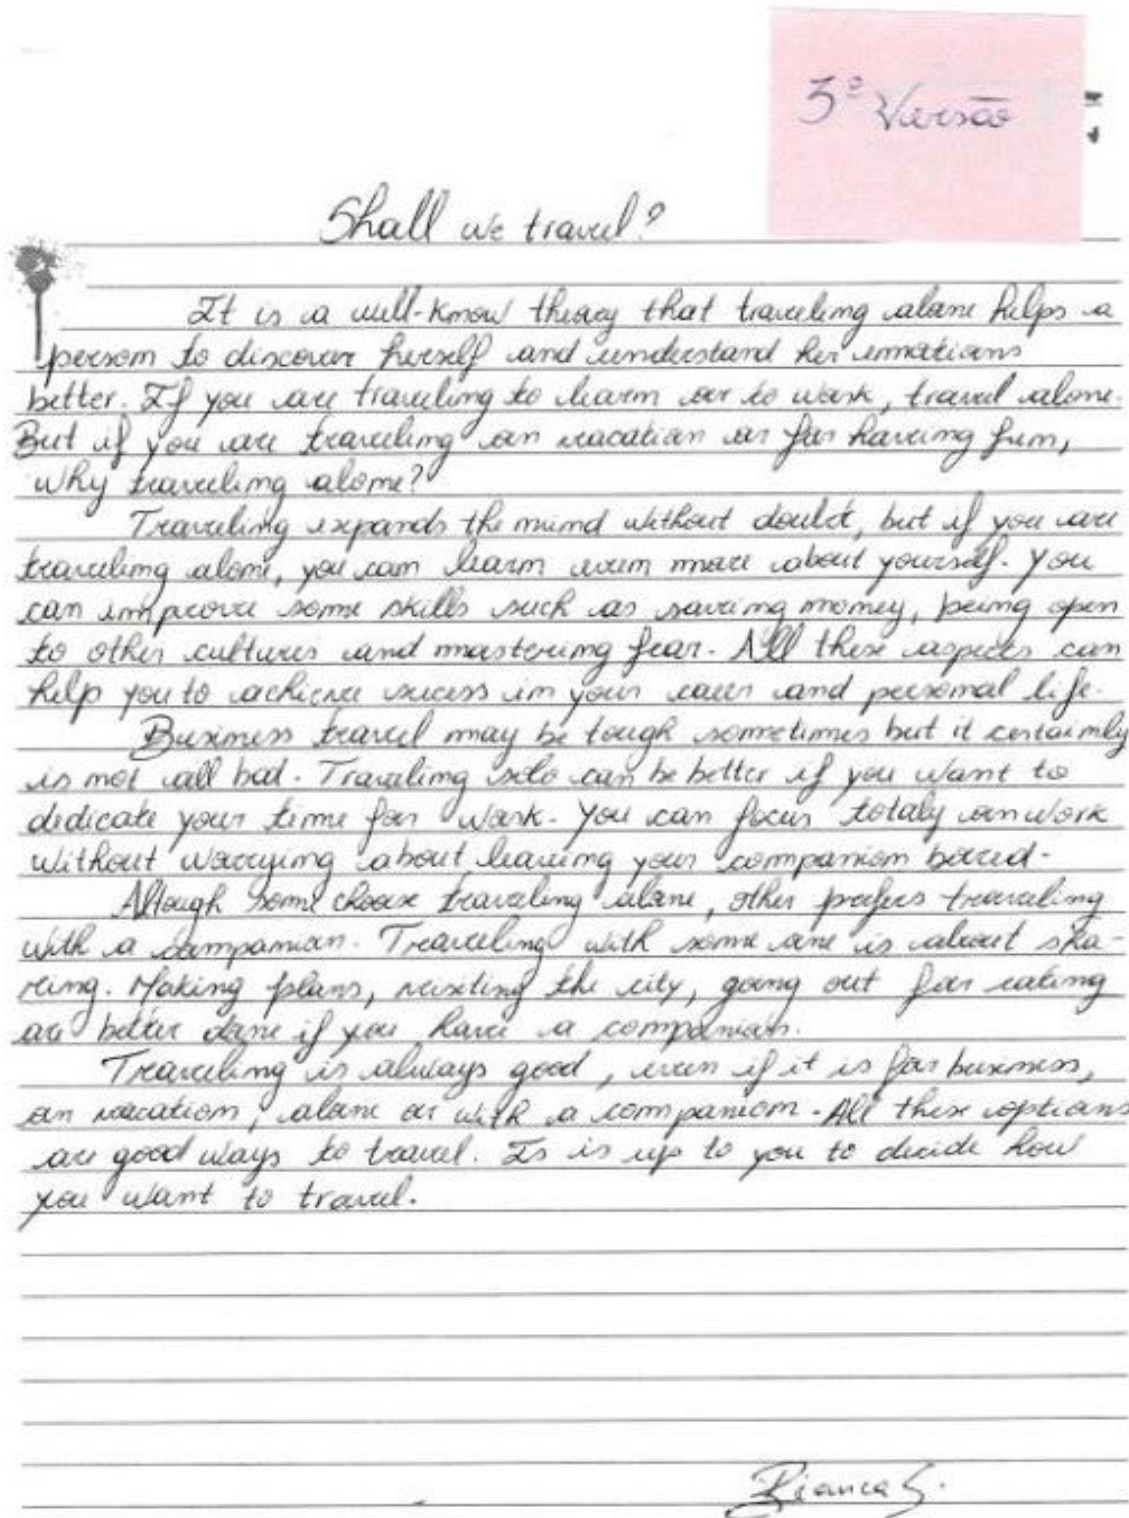 3ª Versão
Shall we travel?
It is a well-know theory that traveling alone helps a
person to discover herself and understand her emotions
better. If you are traveling to learn or to work, travel alone.
But if you are traveling on vacation or for having fun,
why traveling alone?
Traveling expands the mind without doubt, but if you are
traveling alone, you can learn even more about yourself. You
can improve some skills such as saving money, being open
to other cultures and mastering fear. All these aspects can
help you to achieve sucess in your career and personal life.
Business travel may be tough sometimes but it certainly
is not all bad. Traveling solo can be better if you want to
dedicate your time for work. You can focus totaly on work
without worrying about leaving your companion bored.
Altough some choose traveling alone, other prefers traveling
with a companion. Traveling with some one is about sha-
ring. Making plans, visiting the city, going out for eating
are better done if you have a companion.
Traveling is always good, even if it is for business,
on vacation, alone or with a companion. All these options
are good ways to travel. Is is up to you to decide how
you want to travel.
Bianca S.